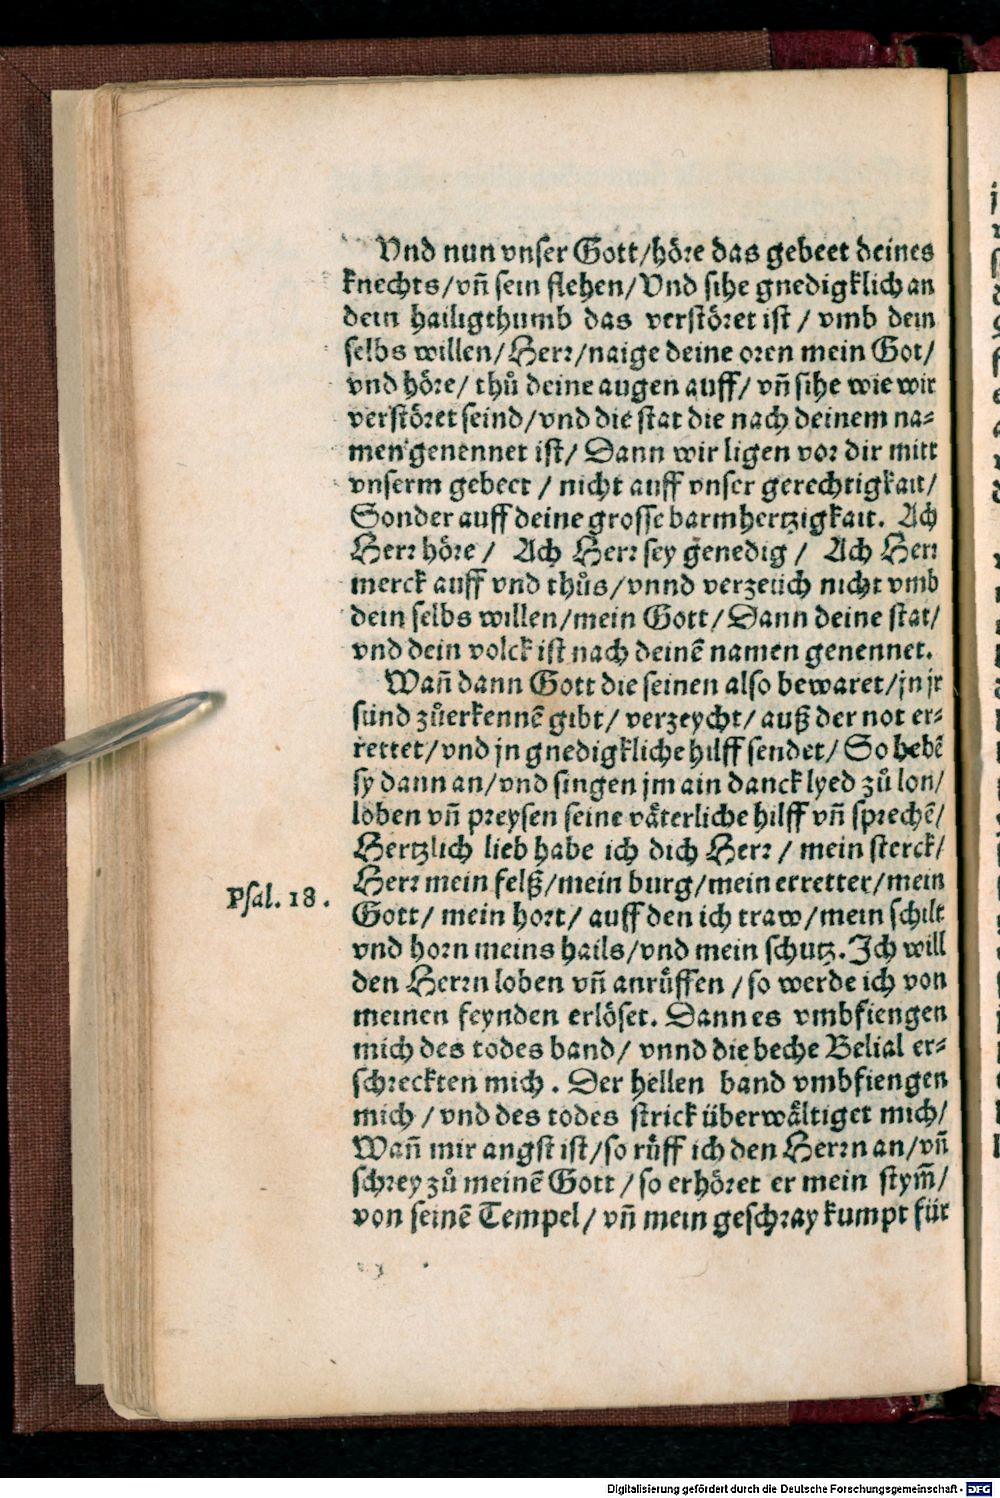 Vnd nun vnser Gott/höre das gebeet deines
knechts/vñ sein flehen/Vnd sihe gnedigklich an
dein hailigthumb das verstöret ist / vmb dein
selbs willen/Herr/naige deine oren mein Got/
vnd höre/ thů deine augen auff/ vñ sihe wie wir
verstöret seind/vnd die stat die nach deinem na⸗
men genennet ist/ Dann wir ligen vor dir mitt
vnserm gebeet / nicht auff vnser gerechtigkait/
Sonder auff deine grosse barmhertzigkait. Ach
Herr höre / Ach Herr sey genedig / Ach Herr
merck auff vnd thůs/vnnd verzeuch nicht vmb
dein selbs willen/mein Gott/Dann deine stat/
vnd dein volck ist nach deinē namen genennet.
Wañ dann Gott die seinen also bewaret/jn jr
sünd zůerkennē gibt/ verzeycht/ auß der not er⸗
rettet/vnd jn gnedigkliche hilff sendet/ So hebē
sy dann an/vnd singen jm ain danck lyed zů lon/
loben vñ preysen seine väterliche hilff vñ sprechē/
Hertzlich lieb habe ich dich Herr / mein sterck/
Psal. 18. Herr mein felß/mein burg/mein erretter/mein
Gott/ mein hort/ auff den ich traw/mein schilt
vnd horn meins hails/vnd mein schutz. Ich will
den Herrn loben vñ anrüffen /so werde ich von
meinen feynden erlöset. Dann es vmbfiengen
mich des todes band/ vnnd die beche Belial er⸗
schreckten mich . Der hellen band vmbfiengen
mich / vnd des todes strick überwältiget mich/
Wañ mir angst ist/so rüff ich den Herrn an/vñ
schrey zů meinē Gott / so erhöret er mein stym̄/
von seinē Tempel/ vñ mein geschray kumpt für
Digitalisierung gefördert durch die Deutsche Forschungsgemeinschaft - DFG